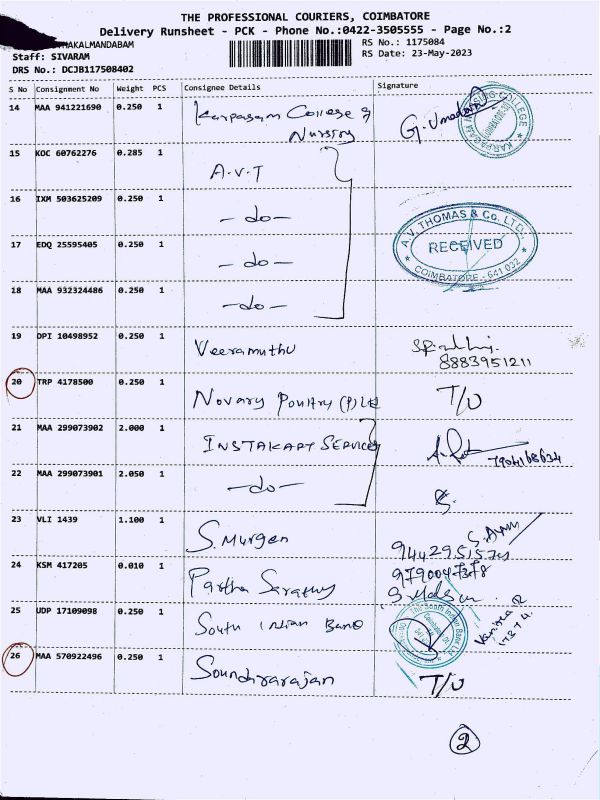 THE PROFESSIONAL COURIERS, COIMBATORE
Delivery Runsheet - PCK - Phone No.:0422-3505555 - Page No.:2
HAKALMANDABAM
RS No.: 1175084
Staff: SIVARAM
RS Date: 23-May-2023
DRS No.: DCJB117508402
S No Consignment No Weight PCS Consignee Details Signature
14 MAA 941221690 0.250 1 Karpagam College of
Nursing
KARPAGAM NURSING COLLEGE
15 KOC 60762276 0.285 1 A.V.T
16 IXM 503625209 0.250 1 -do-
A.V. THOMAS & Co. LTD.
17 EDQ 25595405 0.250 1 -do- RECEIVED
COIMBATORE - 641 032
18 MAA 932324486 0.250 1 -do-
19 OPI 10498952 0.250 1 Veeramuthu
8883951211
20 TRP 4178500 0.250 1 Novary Poultry (P) Ltd T/U
21 MAA 299073902 2.000 1 INSTAKART SERVICES
7904168634
22 MAA 299073901 2.050 1 -do-
23 VLI 1439 1.100 1 S. Murgen
24 KSM 417205 0.010 1 Partha Sarathy
25 UDP 17109098 0.250 1 South Indian Bank
The South Indian Bank Ltd
26 MAA 570922496 0.250 1 Soundrarajan T/U
2